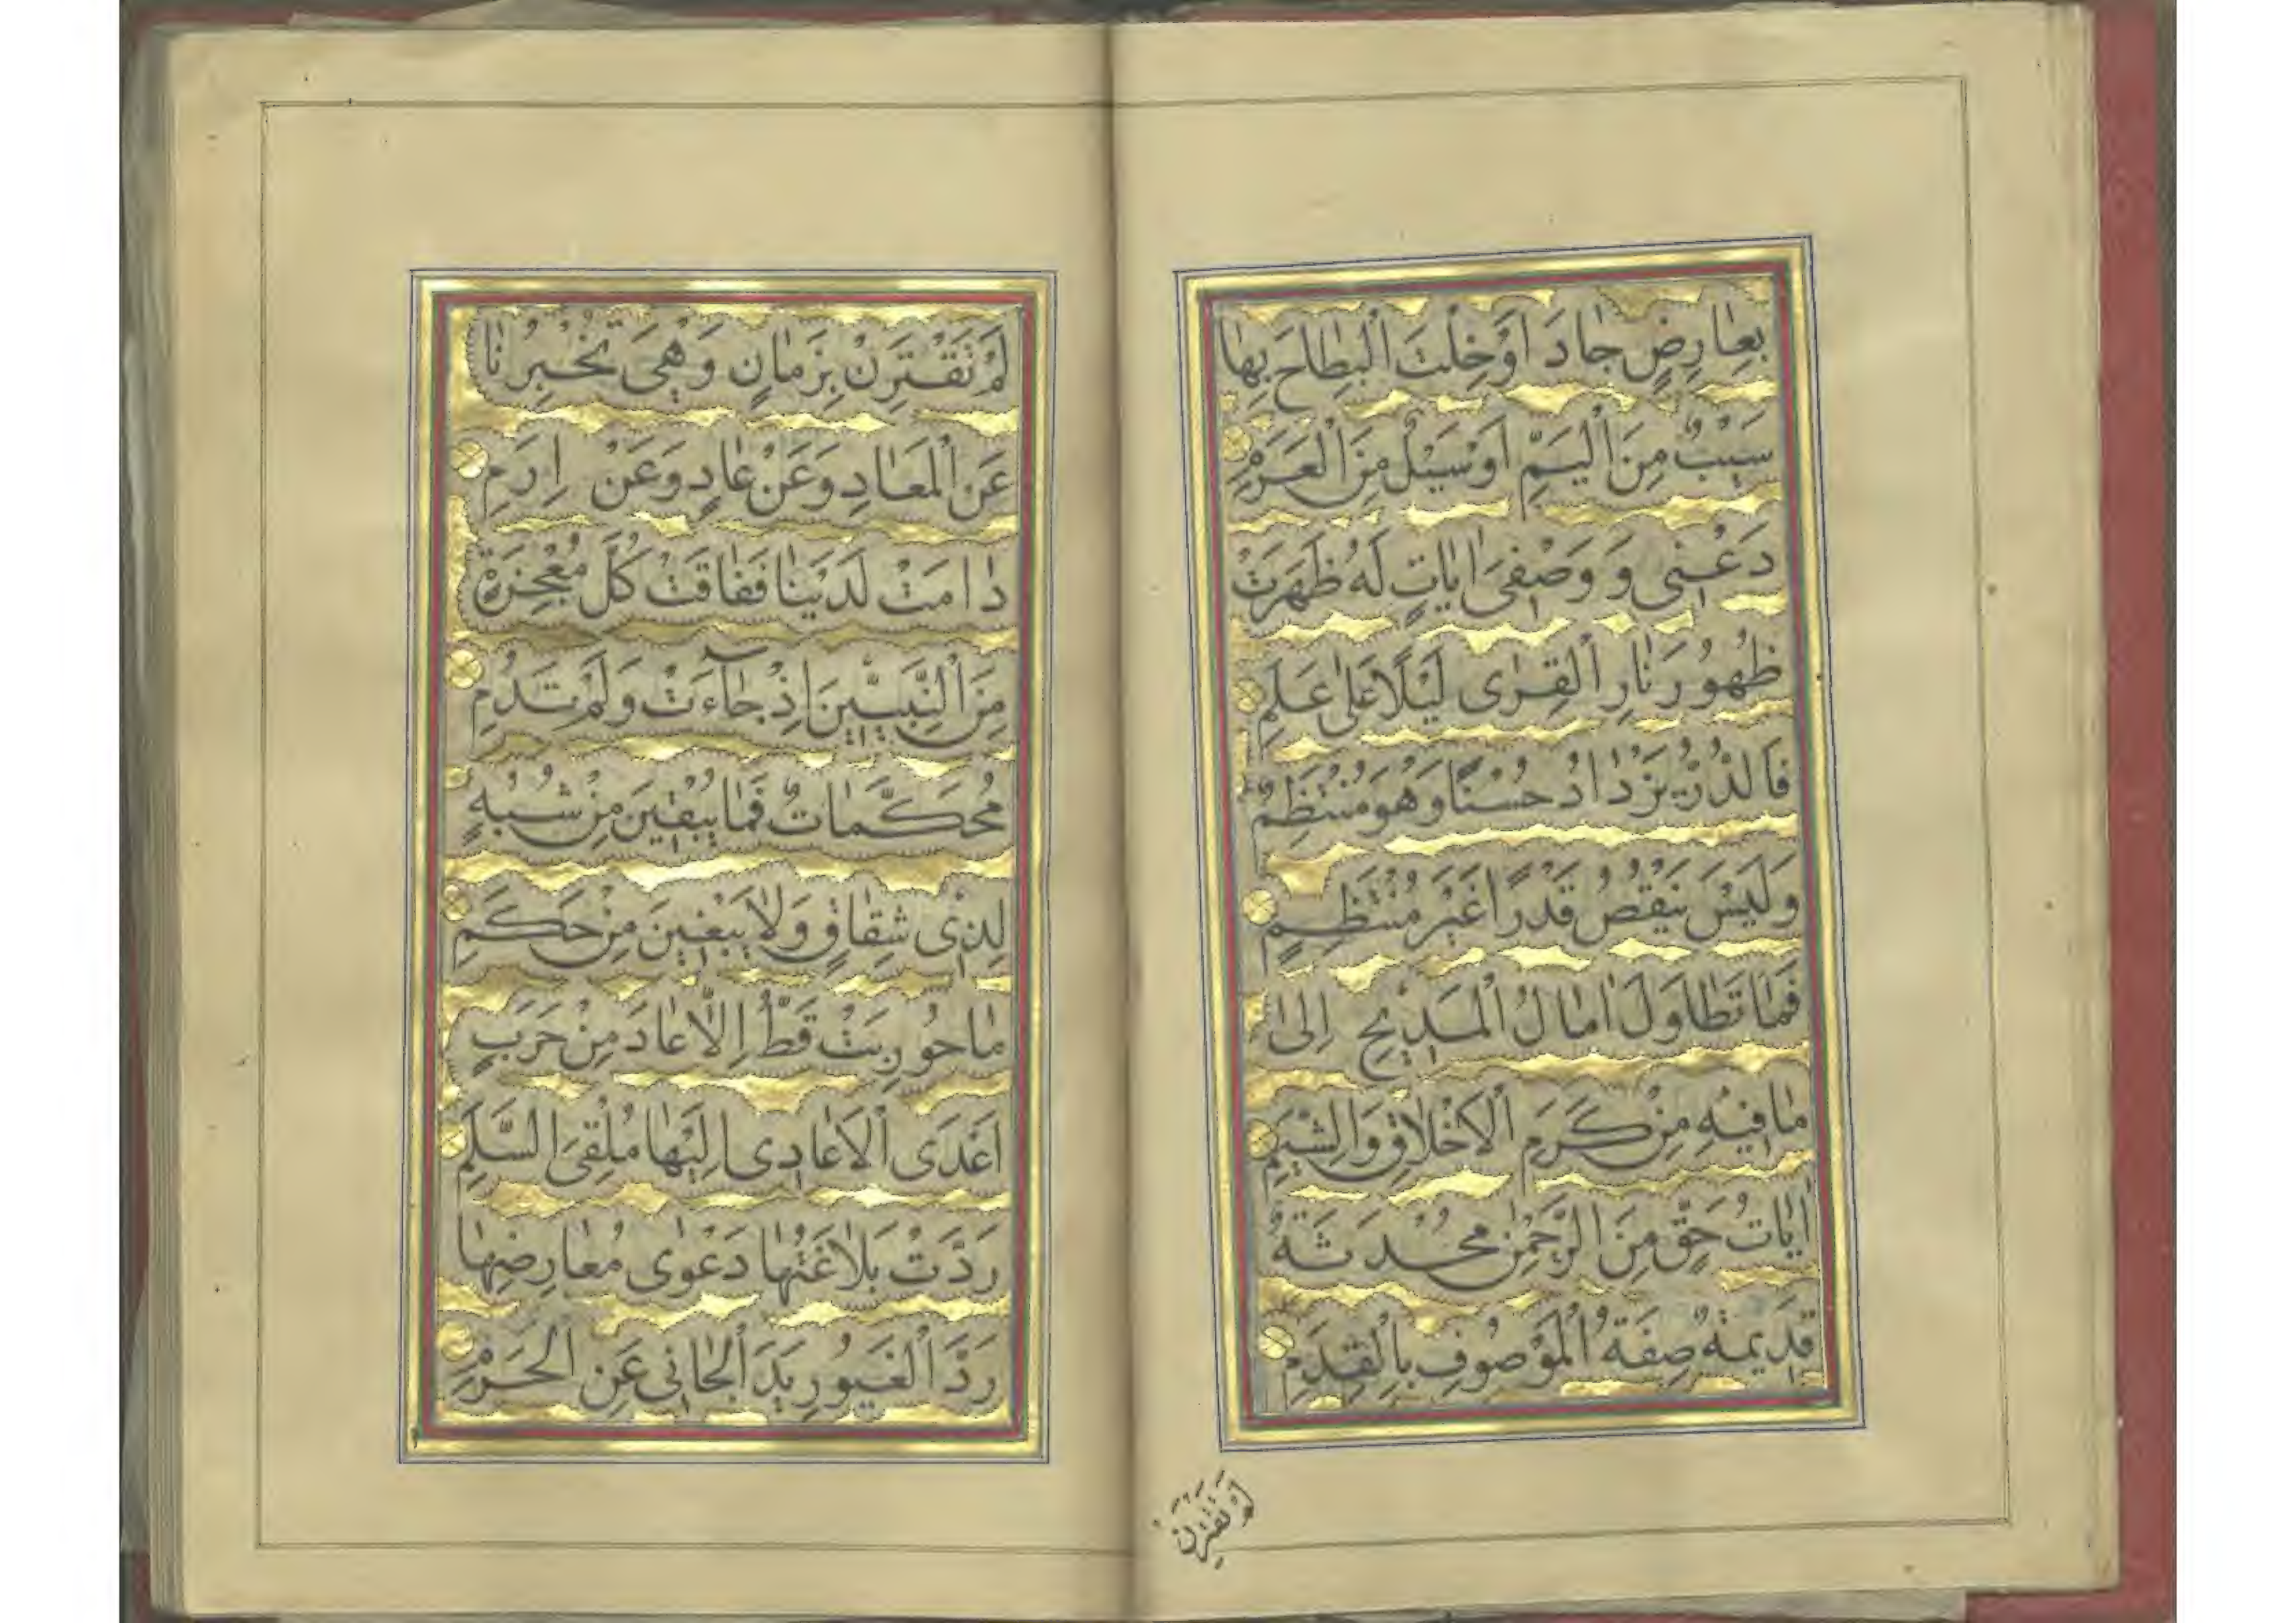 بِعَارِضٍ جَادَ اَوْ خِلْتَ الْبِطَاحَ بِهَا
سَيْبٌ مِنَ الْيَمِّ اَوْ سَيْلٌ مِنَ الْعَرِمِ
دَعْنِي وَ وَصْفِيَ اٰيَاتٍ لَهُ ظَهَرَتْ
ظُهُورَ نَارِ الْقِرٰى لَيْلًا عَلٰى عَلَمِ
فَالدُّرُّ يَزْدَادُ حُسْنًا وَهُوَ مُنْتَظِمٌ
وَلَيْسَ يَنْقُصُ قَدْرًا غَيْرَ مُنْتَظِمٍ
فَمَا تَطَاوَلَ اٰمَالُ الْمَدِيحِ اِلٰى
مَا فِيهِ مِنْ كَرَمِ الْاَخْلَاقِ وَالشِّيَمِ
اٰيَاتُ حَقٍّ مِنَ الرَّحْمٰنِ مُحْدَثَةٌ
قَدِيمَةٌ صِفَةُ الْمَوْصُوفِ بِالْقِدَمِ
لَمْ تَقْتَرِنْ
لَمْ تَقْتَرِنْ بِزَمَانٍ وَهْيَ تُخْبِرُنَا
عَنِ الْمَعَادِ وَعَنْ عَادٍ وَعَنْ اِرَمِ
دَامَتْ لَدَيْنَا فَفَاقَتْ كُلَّ مُعْجِزَةٍ
مِنَ النَّبِيِّينَ اِذْ جَآءَتْ وَلَمْ تَدُمِ
مُحَكَّمَاتٌ فَمَا يُبْقِينَ مِنْ شُبَهٍ
لِذِي شِقَاقٍ وَلَا يَبْغِينَ مِنْ حَكَمِ
مَا حُورِبَتْ قَطُّ اِلَّا عَادَ مِنْ حَرَبٍ
اَعْدَى الْاَعَادِي اِلَيْهَا مُلْقِيَ السَّلَمِ
رَدَّتْ بَلَاغَتُهَا دَعْوٰى مُعَارِضِهَا
رَدَّ الْغَيُورِ يَدَ الْجَانِي عَنِ الْحَرَمِ